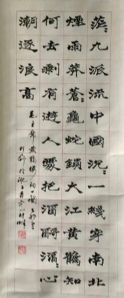 茫〻九派流中國沉〻一綫穿南北
煙雨莽蒼〻龜蛇鎖大江黃鶴知
何去剩有游人處把酒酹滔〻心
潮逐浪高
毛主席黃鶴樓詞一首